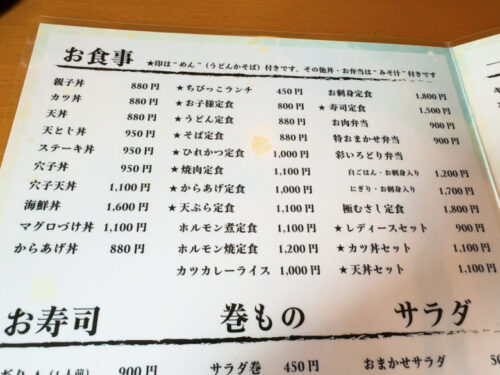 お食事 ★印は"めん"(うどんかそば)付きです。その他丼・お弁当は"みそ汁"付きです
親子丼 880円
カツ丼 880円
天丼 880円
天ヒト丼 950円
ステーキ丼 950円
穴子丼 950円
穴子天丼 1,100円
海鮮丼 1,600円
マグロづけ丼 1,100円
からあげ丼 880円
★ちびっこランチ 450円
★お子様定食 800円
★うどん定食 880円
★そば定食 880円
★ひれかつ定食 1,000円
★焼肉定食 1,100円
★からあげ定食 1,000円
★天ぷら定食 1,100円
ホルモン煮定食 1,100円
ホルモン焼定食 1,200円
カツカレーライス 1,000円
お刺身定食 1,800円
★寿司定食 1,500円
お肉弁当 900円
特おまかせ弁当 900円
彩いろどり弁当
白ごはん・お刺身入り 1,200円
にぎり・お刺身入り 1,700円
極むさし定食 1,800円
★レディースセット 900円
★カツ丼セット 1,100円
★天丼セット 1,100円
お寿司
(1人前) 900円
巻もの
サラダ巻 450円
サラダ
おまかせサラダ